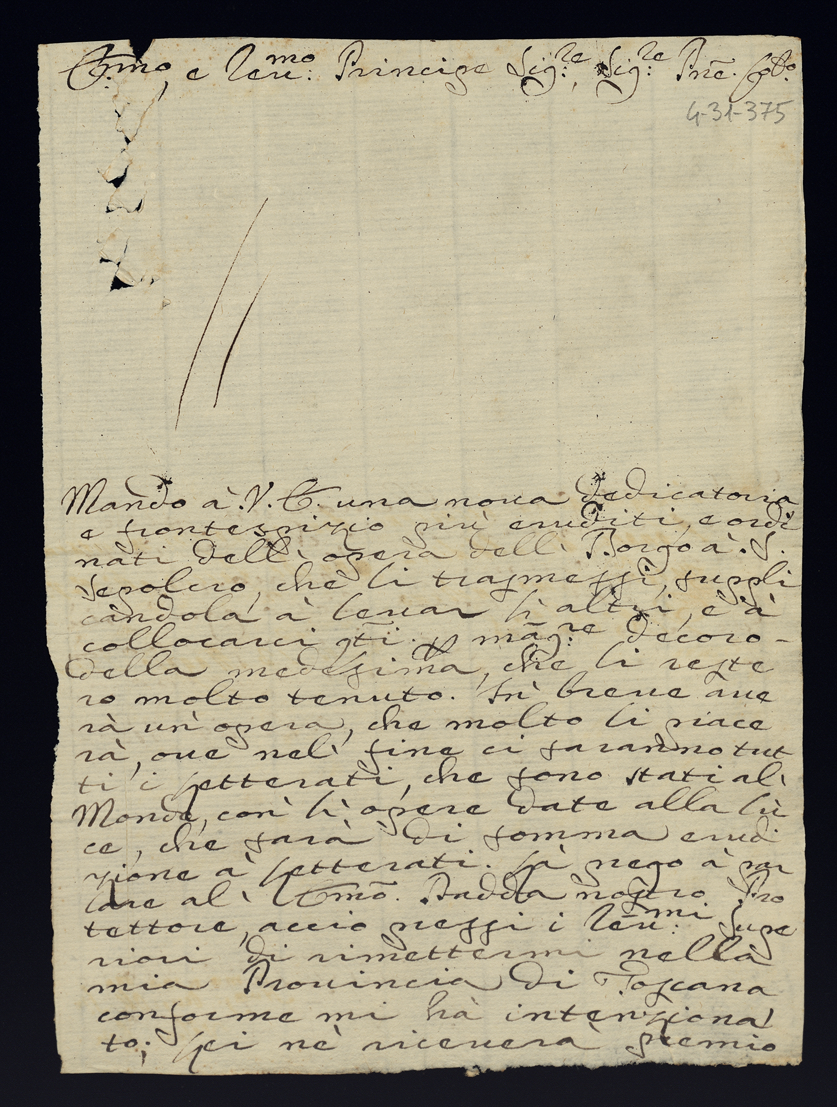 Em.mo, e Rev.mo: Principe Sig.re, Sig.re Prñe. Col.mo
4-31-375
Mando à V. E. una nova dedicatoria
e frontespizio più eruditi, e ordi
nati dell'opera dell' Borgo à S.
Sepolcro, che li trasmessi, suppli
candola à levar li altri, e à
collocarci q.ti p mag.re decoro-
della medesima, che li reste
rò molto tenuto. In breve ave
rà un' opera, che molto li piace
rà, ove nel' fine ci saranno tut
ti i letterati, che sono stati al'
Mondo, con' li opere date alla lu
ce, che sarà di somma erudi
zione à letterati. La prego à par
lare al' Em̃o. Padda nostro Pro
tettore, acciò pressi i Rev:mi Supe
riori di rimettermi nella
mia Provincia di Toscana
conforme mi hà intenziona
to; Lei nè riceverà premio